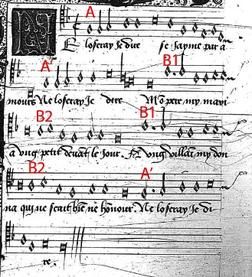 A
E loseray Je dire se jayme par a
A' B1
mours Ne loseray Je dire Mō pere my mari
B2 B1
a vng petit devāt le Jour. vng villai my don
B2 A'
na qui ne scait biē ne hōnour. Ne loseray Je di
re.